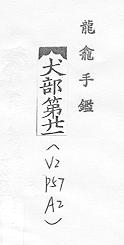 龍龕手鑑
犬部第廿一
(V2
P57
A2)